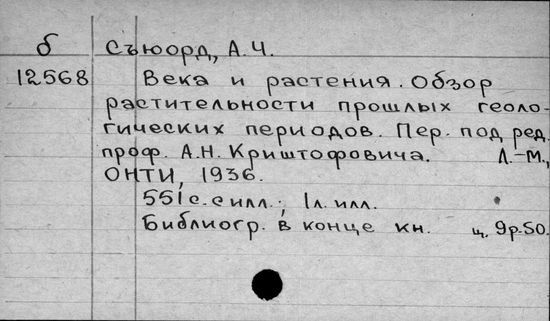 б Съюорд, А.Ч.
12568 Века и растения. Обзор
растительности прошлых геоло-
гических периодов. Пер. под ред.
проф. А.Н. Криштофовича. Л.-М.,
ОНТИ, 1936.
551 с. с илл.; 1 л. илл.
Библиогр. в конце кн. ц. 9р.50.